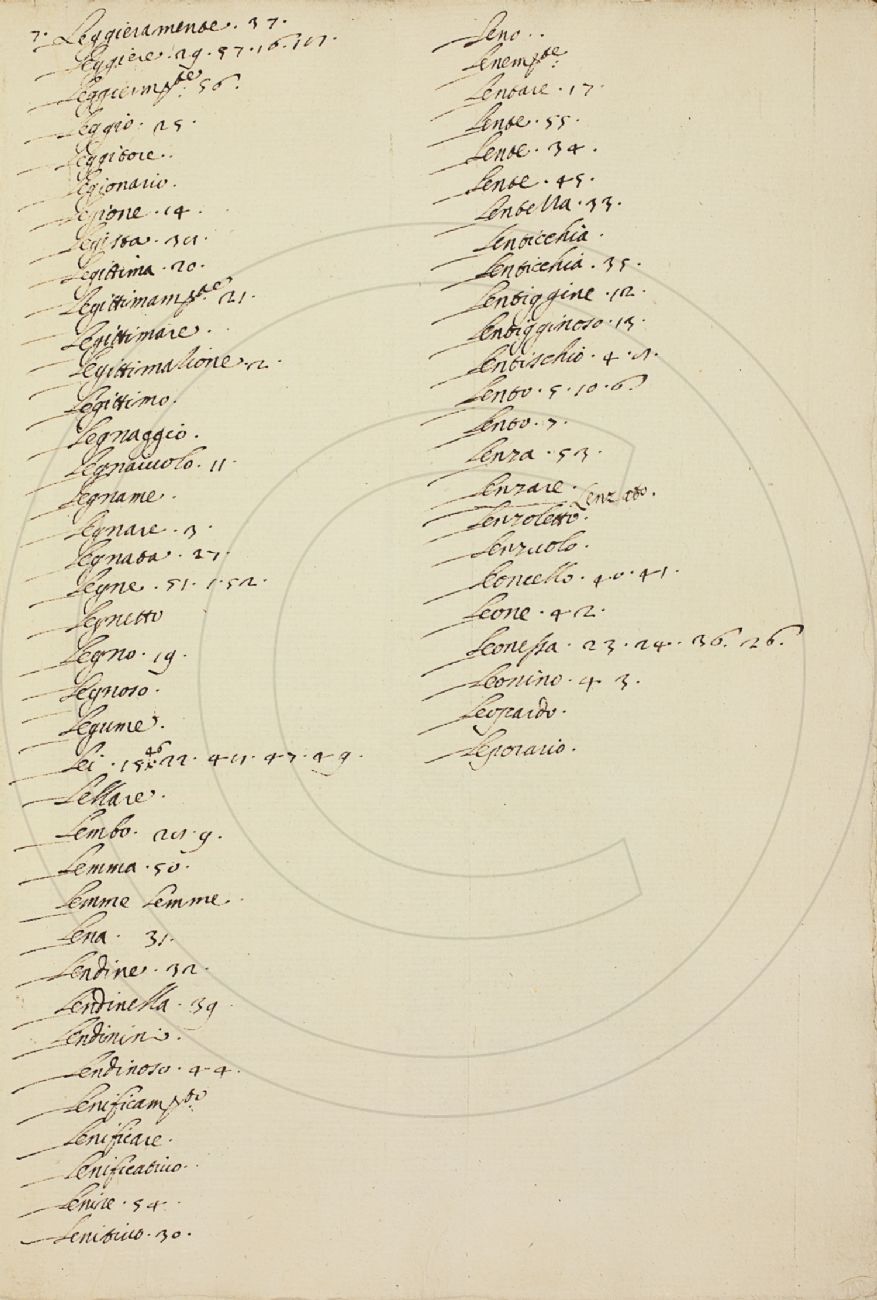 7. Leggieramente. 37.
Leggiere. 29. 57. 16. 101.
Leggierm.te 56.
Leggio. 25.
Leggitore.
Legionario.
Legione. 14.
Legista. 30.
Legittima. 20.
Legittimam.te 21.
Legittimare.
Legittimatione. 2.
Legittimo.
Legnaggio.
Legnaiuolo. 11.
Legname.
Legnare. 3.
Legnata. 27.
Legne. 51. 1. 52.
Legnetto
Legno. 19.
Legnoso.
Legume.
Lei. 15. 46 22. 47. 49.
Lellare.
Lembo. 9.
Lemma. 50.
Lemme Lemme.
Lena. 31.
Lendine. 32.
Lendinella. 39
Lendinini.
Lendinoso. 44.
Lenificam.to
Lenificare.
Lenificativo.
Lenire. 54.
Lenitivo. 30.
Leno.
Lenem.te
Lentare. 17.
Lente. 55.
Lente. 34.
Lente. 45.
Lentella. 33.
Lenticchia.
Lenticchia. 35.
Lentiggine. 12.
Lentigginoso. 13.
Lentischio. 4.
Lento. 5. 10. 6
Lento. 7.
Lenza. 53.
Lenzare.
Lenzato.
Lenzoletto.
Lenzuolo.
Leoncello. 40. 41.
Leone. 42.
Leonessa. 23. 24. 36. 26.
Leonino. 43.
Leopardo.
Leporario.